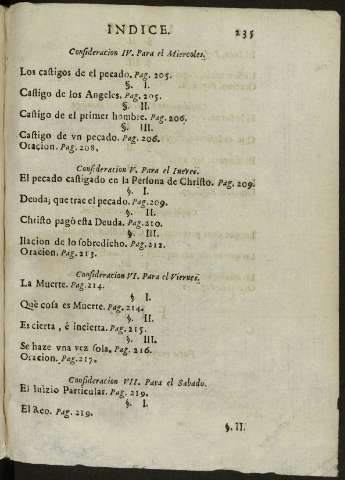 INDICE. 235
Consideracion IV. Para el Miercoles.
Los castigos de el pecado. Pag. 205.
§. I.
Castigo de los Angeles. Pag. 205.
§. II.
Castigo de el primer hombre. Pag. 206.
§. III.
Castigo de vn pecado. Pag. 206.
Oracion. Pag. 208.
Consideracion V. Para el Iueves.
El pecado castigado en la Persona de Christo. Pag. 209.
§. I.
Deuda; que trae el pecado. Pag. 209.
§. II.
Christo pagò esta Deuda. Pag. 210.
§. III.
Ilacion de lo sobredicho. Pag. 212.
Oracion. Pag. 213.
Consideracion VI. Para el Viernes.
La Muerte. Pag. 214.
§ I.
Què cosa es Muerte. Pag. 214.
§. II.
Es cierta, è incierta. Pag. 215.
§. III.
Se haze vna vez sola. Pag. 216.
Oracion. Pag. 217.
Consideracion VII. Para el Sabado.
El Iuizio Particular. Pag. 219.
§. I.
El Reo. Pag. 219.
§. II.